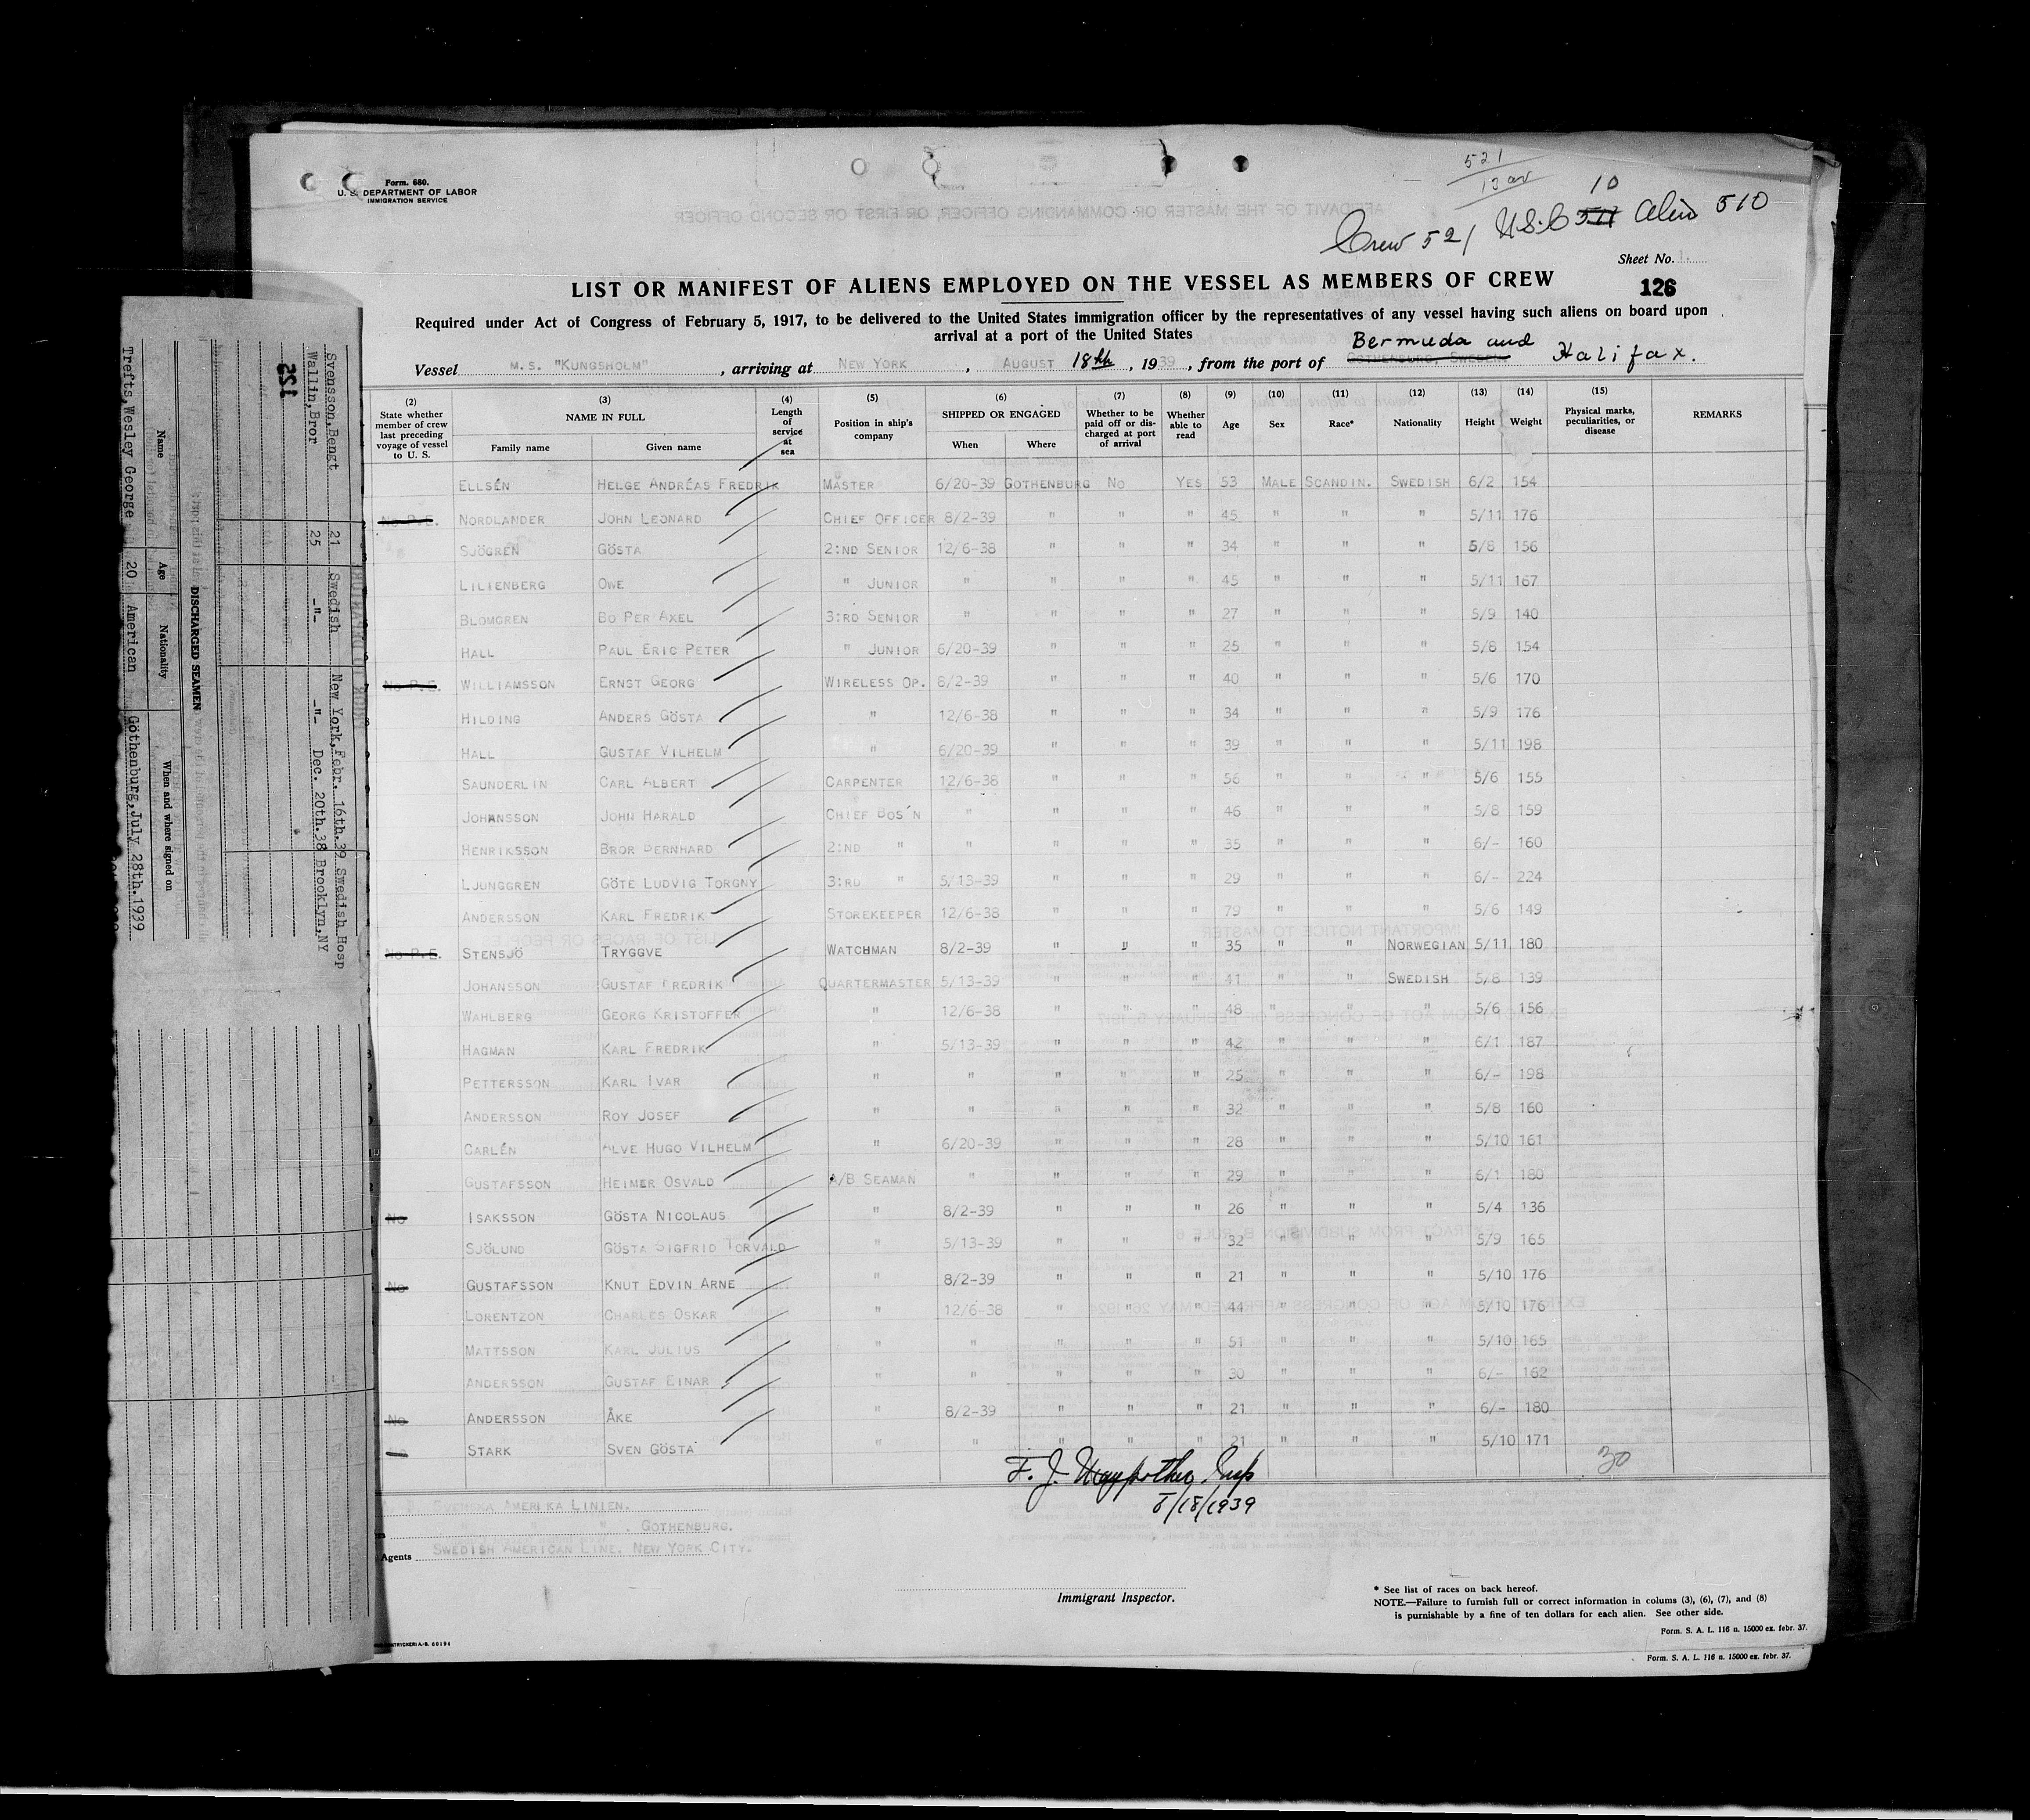 Form. 680.
U. S. DEPARTMENT OF LABOR
IMMIGRATION SERVICE
521
Crew 521 U.S.C 517 10 Alien 510
Sheet No. 1
126
LIST OR MANIFEST OF ALIENS EMPLOYED ON THE VESSEL AS MEMBERS OF CREW
Required under Act of Congress of February 5, 1917, to be delivered to the United States immigration officer by the representatives of any vessel having such aliens on board upon
arrival at a port of the United States
Bermuda and
Vessel M.S. "KUNGSHOLM", arriving at NEW YORK, AUGUST 18th, 1939, from the port of GOTHENBURG, SWEDEN. Halifax.
(2) (3) (4) (5) (6) (7) (8) (9) (10) (11) (12) (13) (14) (15)
State whether member of crew last preceding voyage of vessel to U. S. NAME IN FULL Family name Given name Length of service at sea Position in ship's company SHIPPED OR ENGAGED When Where Whether to be paid off or discharged at port of arrival Whether able to read Age Sex Race* Nationality Height Weight Physical marks, peculiarities, or disease REMARKS
ELLSÉN HELGE ANDRÉAS FREDRIK MASTER 6/20-39 GOTHENBURG NO YES 53 MALE SCANDIN. SWEDISH 6/2 154
No P.E. NORDLANDER JOHN LEONARD CHIEF OFFICER 8/2-39 " " " 45 " " " 5/11 176
SJÖGREN GÖSTA 2:ND SENIOR 12/6-38 " " " 34 " " " 5/8 156
LILIENBERG OWE " JUNIOR " " " " 45 " " " 5/11 167
BLOMGREN BO PER AXEL 3:RD SENIOR " " " " 27 " " " 5/9 140
HALL PAUL ERIC PETER " JUNIOR 6/20-39 " " " 25 " " " 5/8 154
No P.E. WILLIAMSSON ERNST GEORG WIRELESS OP. 8/2-39 " " " 40 " " " 5/6 170
HILDING ANDERS GÖSTA " 12/6-38 " " " 34 " " " 5/9 176
HALL GUSTAF VILHELM " 6/20-39 " " " 39 " " " 5/11 198
SAUNDERLIN CARL ALBERT CARPENTER 12/6-38 " " " 56 " " " 5/6 155
JOHANSSON JOHN HARALD CHIEF BOS'N " " " " 46 " " " 5/8 159
HENRIKSSON BROR BERNHARD 2:ND " " " " " 35 " " " 6/- 160
LJUNGGREN GÖTE LUDVIG TORGNY 3:RD " 5/13-39 " " " 29 " " " 6/- 224
ANDERSSON KARL FREDRIK STOREKEEPER 12/6-38 " " " 79 " " " 5/6 149
No P.E. STENSJÖ TRYGGVE WATCHMAN 8/2-39 " " " 35 " " NORWEGIAN 5/11 180
JOHANSSON GUSTAF FREDRIK QUARTERMASTER 5/13-39 " " " 41 " " SWEDISH 5/8 139
WAHLBERG GEORG KRISTOFFER " 12/6-38 " " " 48 " " " 5/6 156
HAGMAN KARL FREDRIK " 5/13-39 " " " 42 " " " 6/1 187
PETTERSSON KARL IVAR " " " " " 25 " " " 6/- 198
ANDERSSON ROY JOSEF " " " " " 32 " " " 5/8 160
CARLÉN ALVE HUGO VILHELM " 6/20-39 " " " 28 " " " 5/10 161
GUSTAFSSON HEIMER OSVALD A/B SEAMAN " " " " 29 " " " 6/1 180
No ISAKSSON GÖSTA NICOLAUS " 8/2-39 " " " 26 " " " 5/4 136
SJÖLUND GÖSTA SIGFRID TORVALD " 5/13-39 " " " 32 " " " 5/9 165
No GUSTAFSSON KNUT EDVIN ARNE " 8/2-39 " " " 21 " " " 5/10 176
LORENTZON CHARLES OSKAR " 12/6-38 " " " 44 " " " 5/10 176
MATTSSON KARL JULIUS " " " " " 51 " " " 5/10 165
ANDERSSON GUSTAF EINAR " " " " " 30 " " " 6/- 162
No ANDERSSON ÅKE " 8/2-39 " " " 21 " " " 6/- 180
No STARK SVEN GÖSTA " " " " " 21 " " " 5/10 171
30
F. J. Insp
8/18/1939
SVENSKA AMERIKA LINIEN.
" " " . GOTHENBURG.
Agents SWEDISH AMERICAN LINE. NEW YORK CITY.
Immigrant Inspector.
* See list of races on back hereof.
NOTE.—Failure to furnish full or correct information in colums (3), (6), (7), and (8)
is punishable by a fine of ten dollars for each alien. See other side.
Form. S. A. L. 116 a. 15000 ex. febr. 37.
Form. S. A. L. 116 a. 15000 ex. febr. 37.
125
Svensson,Bengt 21 Swedish New York,Febr. 16th.39 Swedish Hosp
Wallin,Bror 25 -"- -"- Dec. 20th.38 Brooklyn,NY
DISCHARGED SEAMEN
Name Age Nationality When and where signed on
Trefts,Wesley George 20 American Gothenburg,July 28th.1939